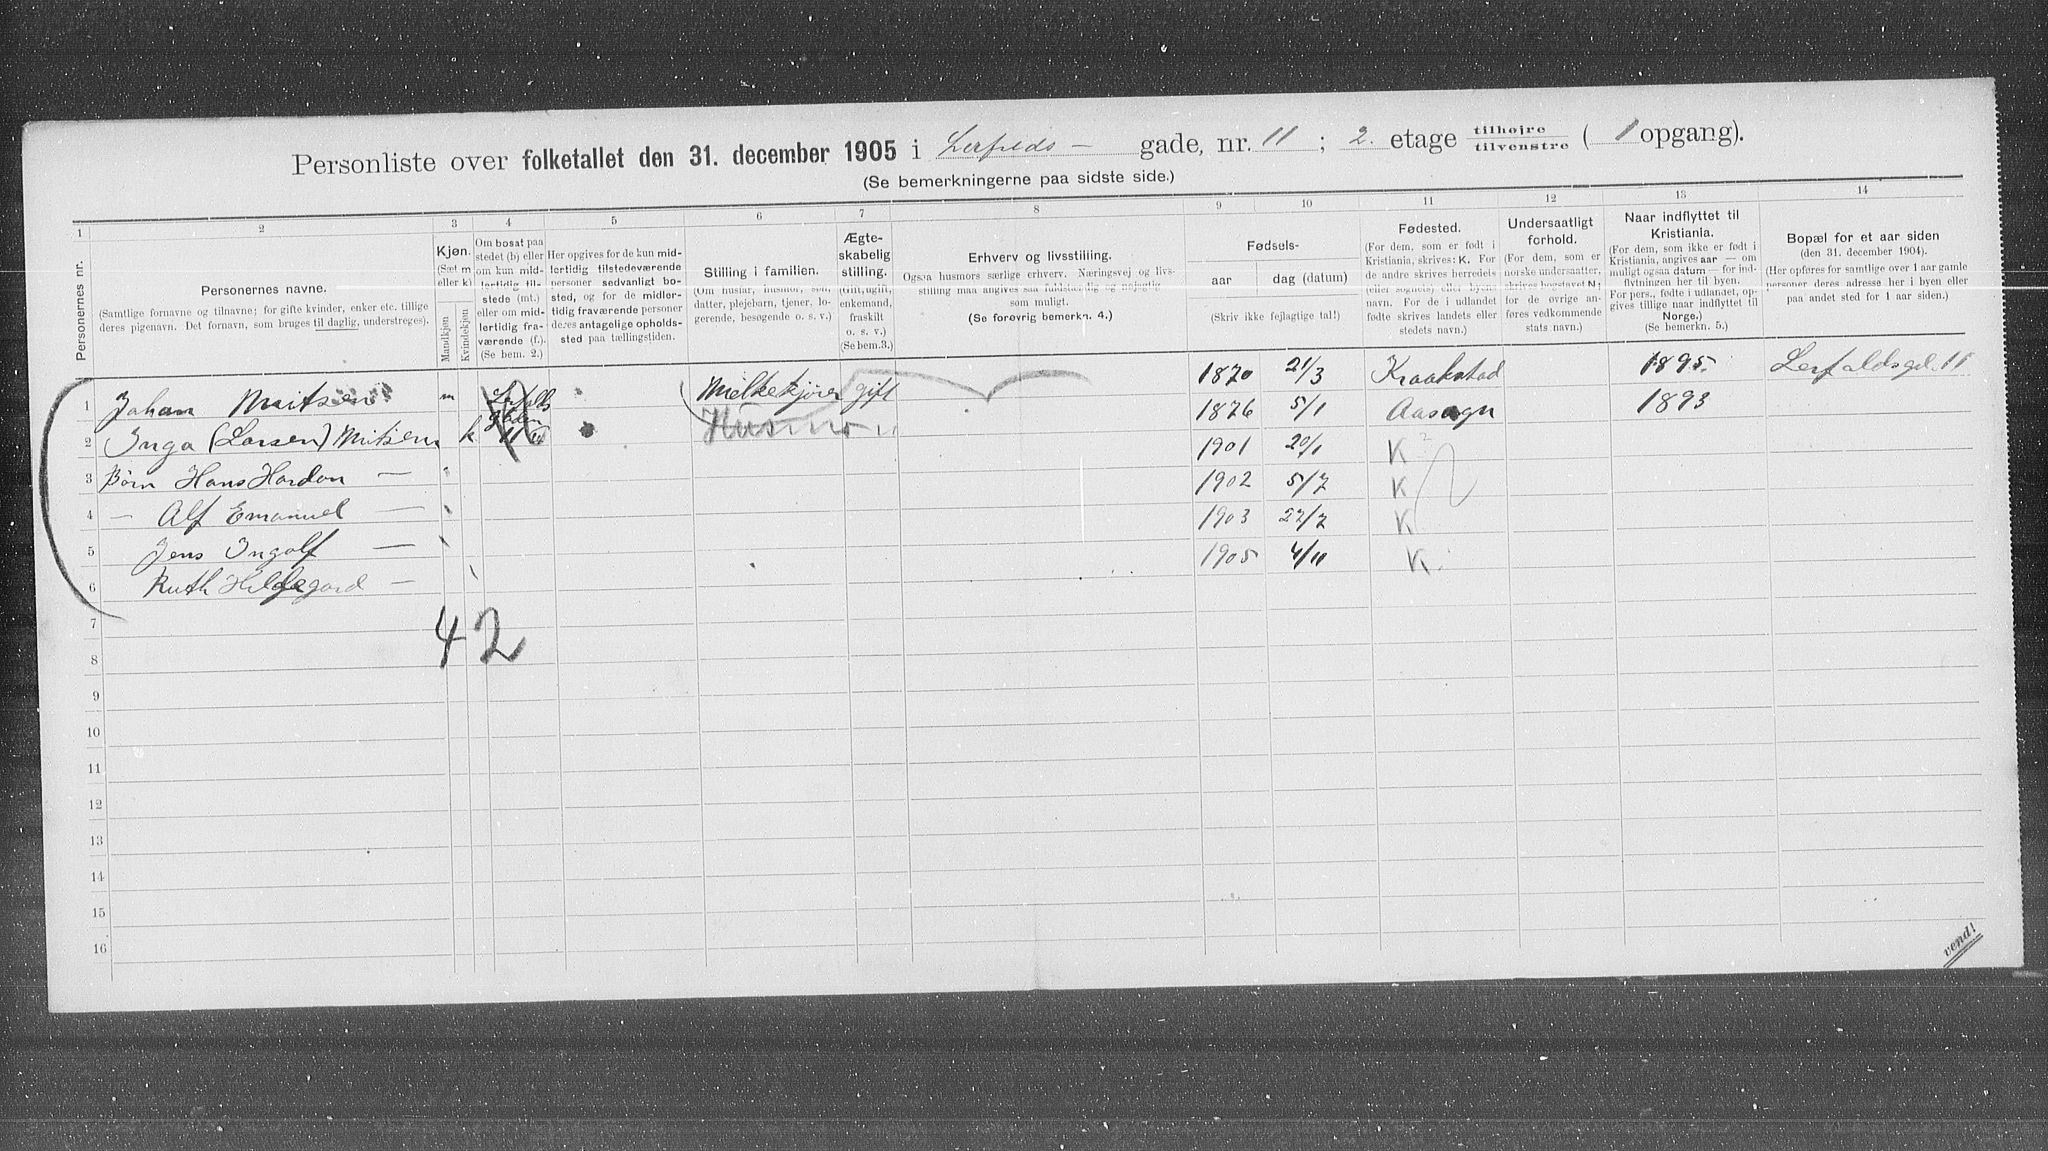 Personliste over folketallet den 31. december 1905 i Lerfilds - gade, nr. 11 ; 2. etage tilhøjre tilvenstre ( 1 opgang).
(Se bemerkningerne paa sidste side.)
1 2 3 4 5 6 7 8 9 10 11 12 13 14
Personernes nr.
Personernes navne.
(Samtlige fornavne og tilnavne; for gifte kvinder, enker etc. tillige
deres pigenavn. Det fornavn, som bruges til daglig, understreges).
Kjøn.
(Sæt m
eller k)
Mandkjøn
Kvindekjøn
Om bosat paa
stedet (b) eller
om kun mid-
lertidig til-
stede (mt.)
eller om mid-
lertidig fra-
værende (f.).
(Se bem. 2.)
Her opgives for de kun mid-
lertidig tilstedeværende
personer sedvanligt bo-
sted, og for de midler-
tidig fraværende personer
deres antagelige opholds-
sted paa tællingstiden.
Stilling i familien.
(Om husfar, husmor, søn,
datter, plejebarn, tjener, lo-
gerende, besøgende o. s. v.)
Ægte-
skabelig
stilling.
(Gift, ugift,
enkemand,
fraskilt
o. s. v.)
(Se bem.3.)
Erhverv og livsstilling.
Ogsaa husmors særlige erhverv. Næringsvej og livs-
stilling maa angives saa fuldstændig og nøjagtig
som muligt.
(Se forøvrig bemerkn. 4.)
Fødsels-
aar dag (datum)
(Skriv ikke fejlagtige tal!)
Fødested.
(For dem, som er født i
Kristiania, skrives: K. For
de andre skrives herredets
(eller sognets) eller byens
navn. For de i udlandet
fødte skrives landets eller
stedets navn.)
Undersaatligt
forhold.
(For dem, som er
norske undersaatter,
skrives bogstavet N;
for de øvrige an-
føres vedkommende
stats navn.)
Naar indflyttet til
Kristiania.
(For dem, som ikke er født i
Kristiania, angives aar — om
muligt ogsaa datum — for ind-
flytningen her til byen.
For pers., fødte i udlandet, op-
gives tillige naar indflyttet til
Norge.)
(Se bemerkn. 5.)
Bopæl for et aar siden
(den 31. december 1904).
(Her opføres for samtlige over 1 aar gamle
personer deres adresse her i byen eller
paa andet sted for 1 aar siden.)
1 Johan m Melkekjører gift 1870 21/3 Kraakstad 1895 Lerfaldsgd. 11
2 Inga (Larsen) k Husmo " 1876 5/1 1893
3 Børn Hans — 1901 20/1 K
4 — Alf Emanuel — 1902 5/7 K
5 Jens Ingolf — 1903 K
6 Ruth Hildegard — 1905 4/11 K
42
7
8
9
10
11
12
13
14
15
16
vend!